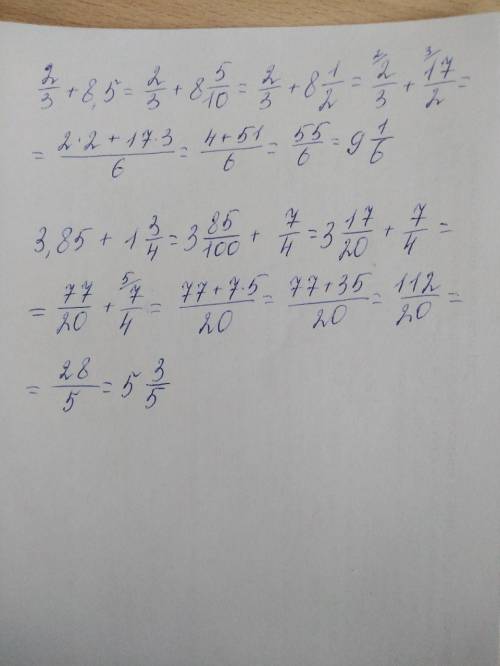 2/3 + 8,5 = 2/3 + 8 5/10 = 2/3 + 8 1/2 = ²2/3 + ³17/2 =
= 2·2 + 17·3/6 = 4+51/6 = 55/6 = 9 1/6
3,85 + 1 3/4 = 3 85/100 + 7/4 = 3 17/20 + 7/4 =
= 77/20 + ⁵7/4 = 77+7·5/20 = 77+35/20 = 112/20 =
= 28/5 = 5 3/5